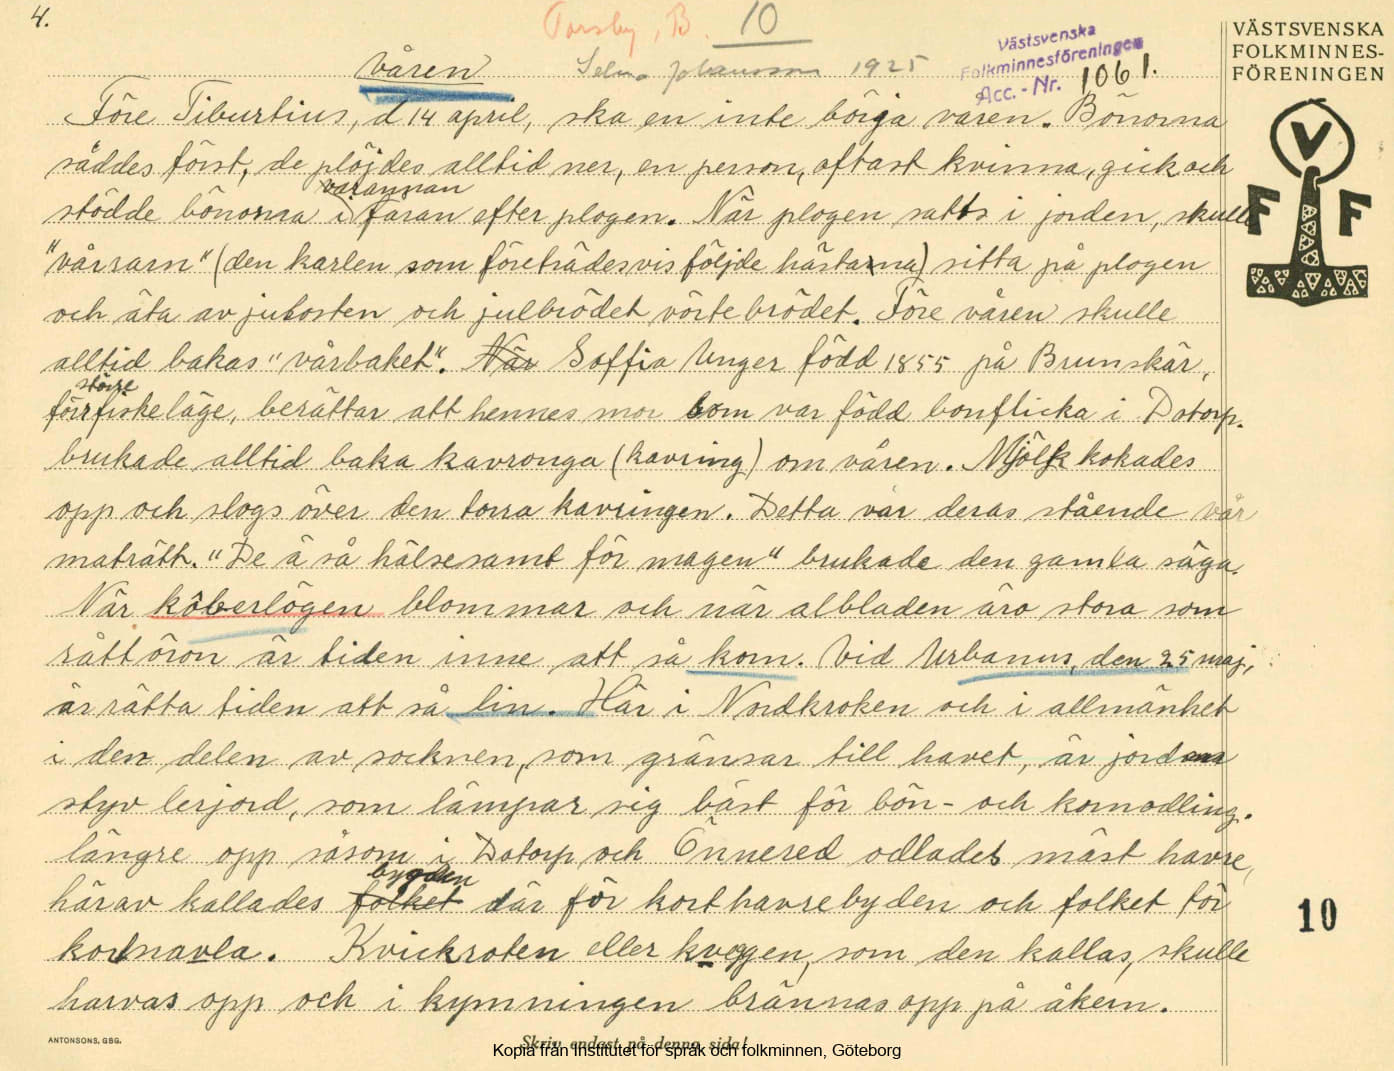 4.
Torsby, B. 10
Selma Johansson 1925
Västsvenska
Folkminnesföreningen
Acc. - Nr. 1061.
VÄSTSVENSKA
FOLKMINNES-
FÖRENINGEN
V
F F
våren
Före Tiburtius, d 14 april, ska en inte börja våren. Bönorna
såddes först, de plöjdes alltid ner, en person, oftast kvinna, gick och
varannan
stödde bönorna i fåran efter plogen. När plogen satts i jorden, skulle
"vårrarn" (den karlen som företrädesvis följde hästarna) sitta på plogen
och äta av julosten och julbrödet vörtebrödet. Före våren skulle
alltid bakas "vårbaket". När Soffia Unger född 1855 på Brunskär,
större
förr fiskeläge, berättar att hennes mor som var född bonflicka i Dotorp.
brukade alltid baka kavronga (kavring) om våren. Mjölk kokades
opp och slogs över den torra kavringen. Detta var deras stående vår
maträtt. "De ä så hälsesamt för magen" brukade den gamla säga.
När kôberlögen blommar och när albladen äro stora som
råttöron är tiden inne att så korn. Vid Urbanus, den 25 maj,
är rätta tiden att så lin. Här i Nordkroken och i allmänhet
i den delen av socknen, som gränsar till havet, är jorden
styv lerjord, som lämpar sig bäst för bön- och kornodling.
längre opp såsom i Dotorp och Önnered odlades mäst havre,
bygden
härav kallades folket där för korthavrebyden och folket för
kornavla. Kvickroten eller kveggen, som den kallas, skulle
harvas opp och i kymningen brännas opp på åkern.
10
ANTONSONS, GBG.
Skriv endast på denna sida!
Kopia från Institutet för språk och folkminnen, Göteborg